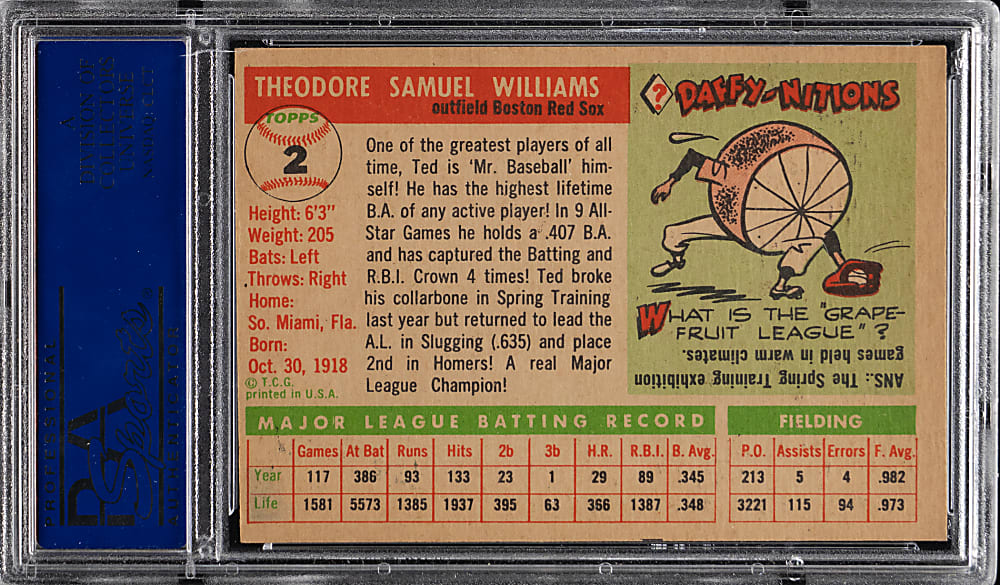 A
DIVISION OF
COLLECTORS
UNIVERSE
NASDAQ: CLCT
PSA
PROFESSIONAL
AUTHENTICATOR
THEODORE SAMUEL WILLIAMS
outfield Boston Red Sox
TOPPS
2
Height: 6'3"
Weight: 205
Bats: Left
Throws: Right
Home:
So. Miami, Fla.
Born:
Oct. 30, 1918
© T.C.G.
printed in U.S.A.
One of the greatest players of all
time, Ted is 'Mr. Baseball' him-
self! He has the highest lifetime
B.A. of any active player! In 9 All-
Star Games he holds a .407 B.A.
and has captured the Batting and
R.B.I. Crown 4 times! Ted broke
his collarbone in Spring Training
last year but returned to lead the
A.L. in Slugging (.635) and place
2nd in Homers! A real Major
League Champion!
? DAFFY-NITIONS
WHAT IS THE "GRAPE-
FRUIT LEAGUE"?
ANS.: The Spring Training exhibition
games held in warm climates.
MAJOR LEAGUE BATTING RECORD FIELDING
Games At Bat Runs Hits 2b 3b H.R. R.B.I. B. Avg. P.O. Assists Errors F. Avg.
Year 117 386 93 133 23 1 29 89 .345 213 5 4 .982
Life 1581 5573 1385 1937 395 63 366 1387 .348 3221 115 94 .973